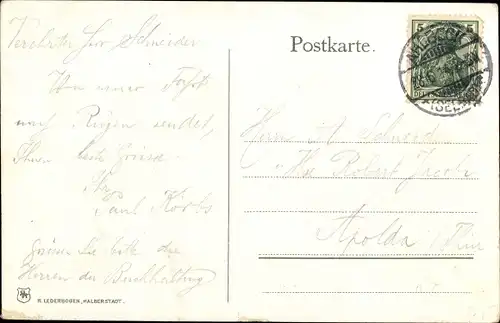 Verehrter Herr Schneider
Von meiner Fahrt
nach Rügen sendet
Ihnen beste Grüsse
Ihr
Paul Körbs
Grüssen Sie bitte die
Herren der Buchhaltung
R. LEDERBOGEN, HALBERSTADT.
Postkarte.
5 5
Herrn A Schneider
Robert Jacobi
Apolda i/Thür